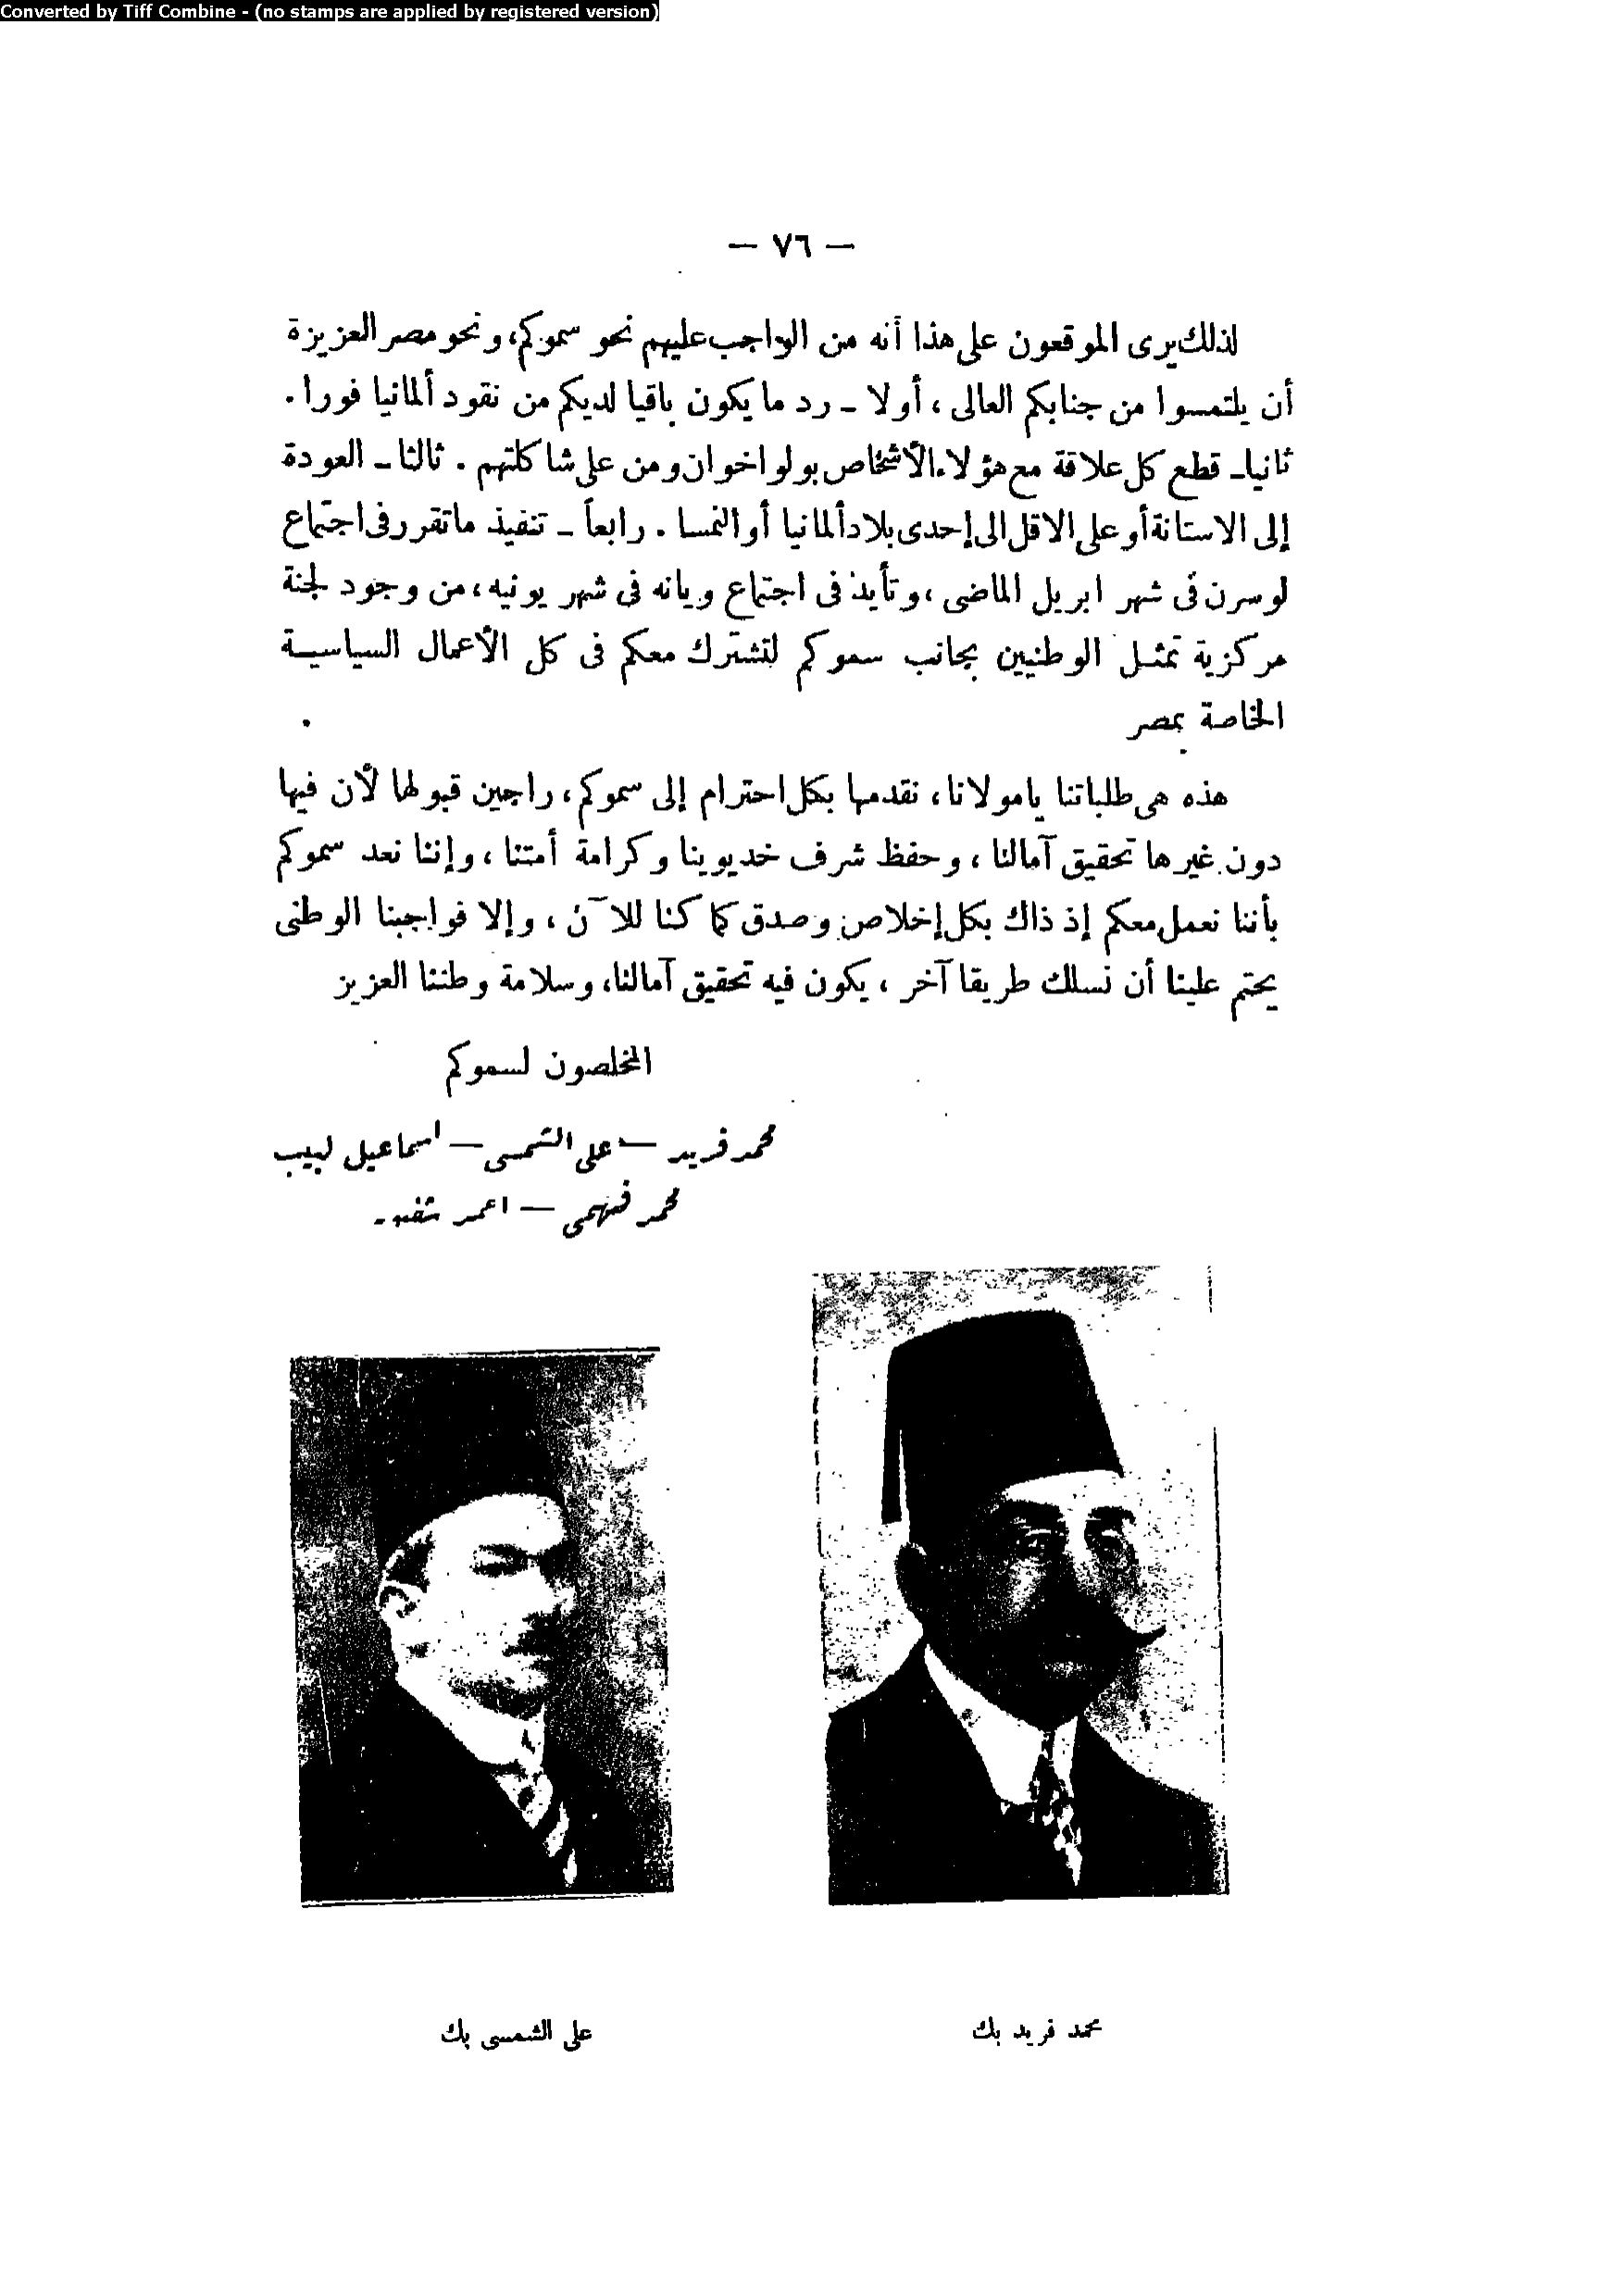 Converted by Tiff Combine - (no stamps are applied by registered version)
— ٧٦ —
لذلك يرى الموقعون على هذا أنه من الواجب عليهم نحو سموكم، ونحو مصر العزيزة
أن يلتمسوا من جنابكم العالى ، أولا ـ رد ما يكون باقيا لديكم من نقود ألمانيا فورا .
ثانيا ـ قطع كل علاقة مع هؤلاء الأشخاص بولو اخوان ومن على شاكلتهم . ثالثا ـ العودة
إلى الاستانة أو على الاقل الى إحدى بلاد ألمانيا أو النمسا . رابعاً ـ تنفيذ ما تقرر فى اجتماع
لوسرن فى شهر ابريل الماضى ، وتأيد فى اجتماع ويانه فى شهر يونيه ، من وجود لجنة
مركزية تمثل الوطنيين بجانب سموكم لتشترك معكم فى كل الأعمال السياسية
الخاصة بمصر .
هذه هى طلباتنا يا مولانا ، نقدمها بكل احترام إلى سموكم ، راجين قبولها لأن فيها
دون غيرها تحقيق آمالنا ، وحفظ شرف خديوينا وكرامة أمتنا ، وإننا نعد سموكم
بأننا نعمل معكم إذ ذاك بكل إخلاص وصدق كما كنا للآن ، وإلا فواجبنا الوطنى
يحتم علينا أن نسلك طريقا آخر ، يكون فيه تحقيق آمالنا، وسلامة وطننا العزيز
المخلصون لسموكم
محمد فريد — على الشمسى — اسماعيل لبيب
محمد فهمى — احمد
محمد فريد بك
على الشمسى بك